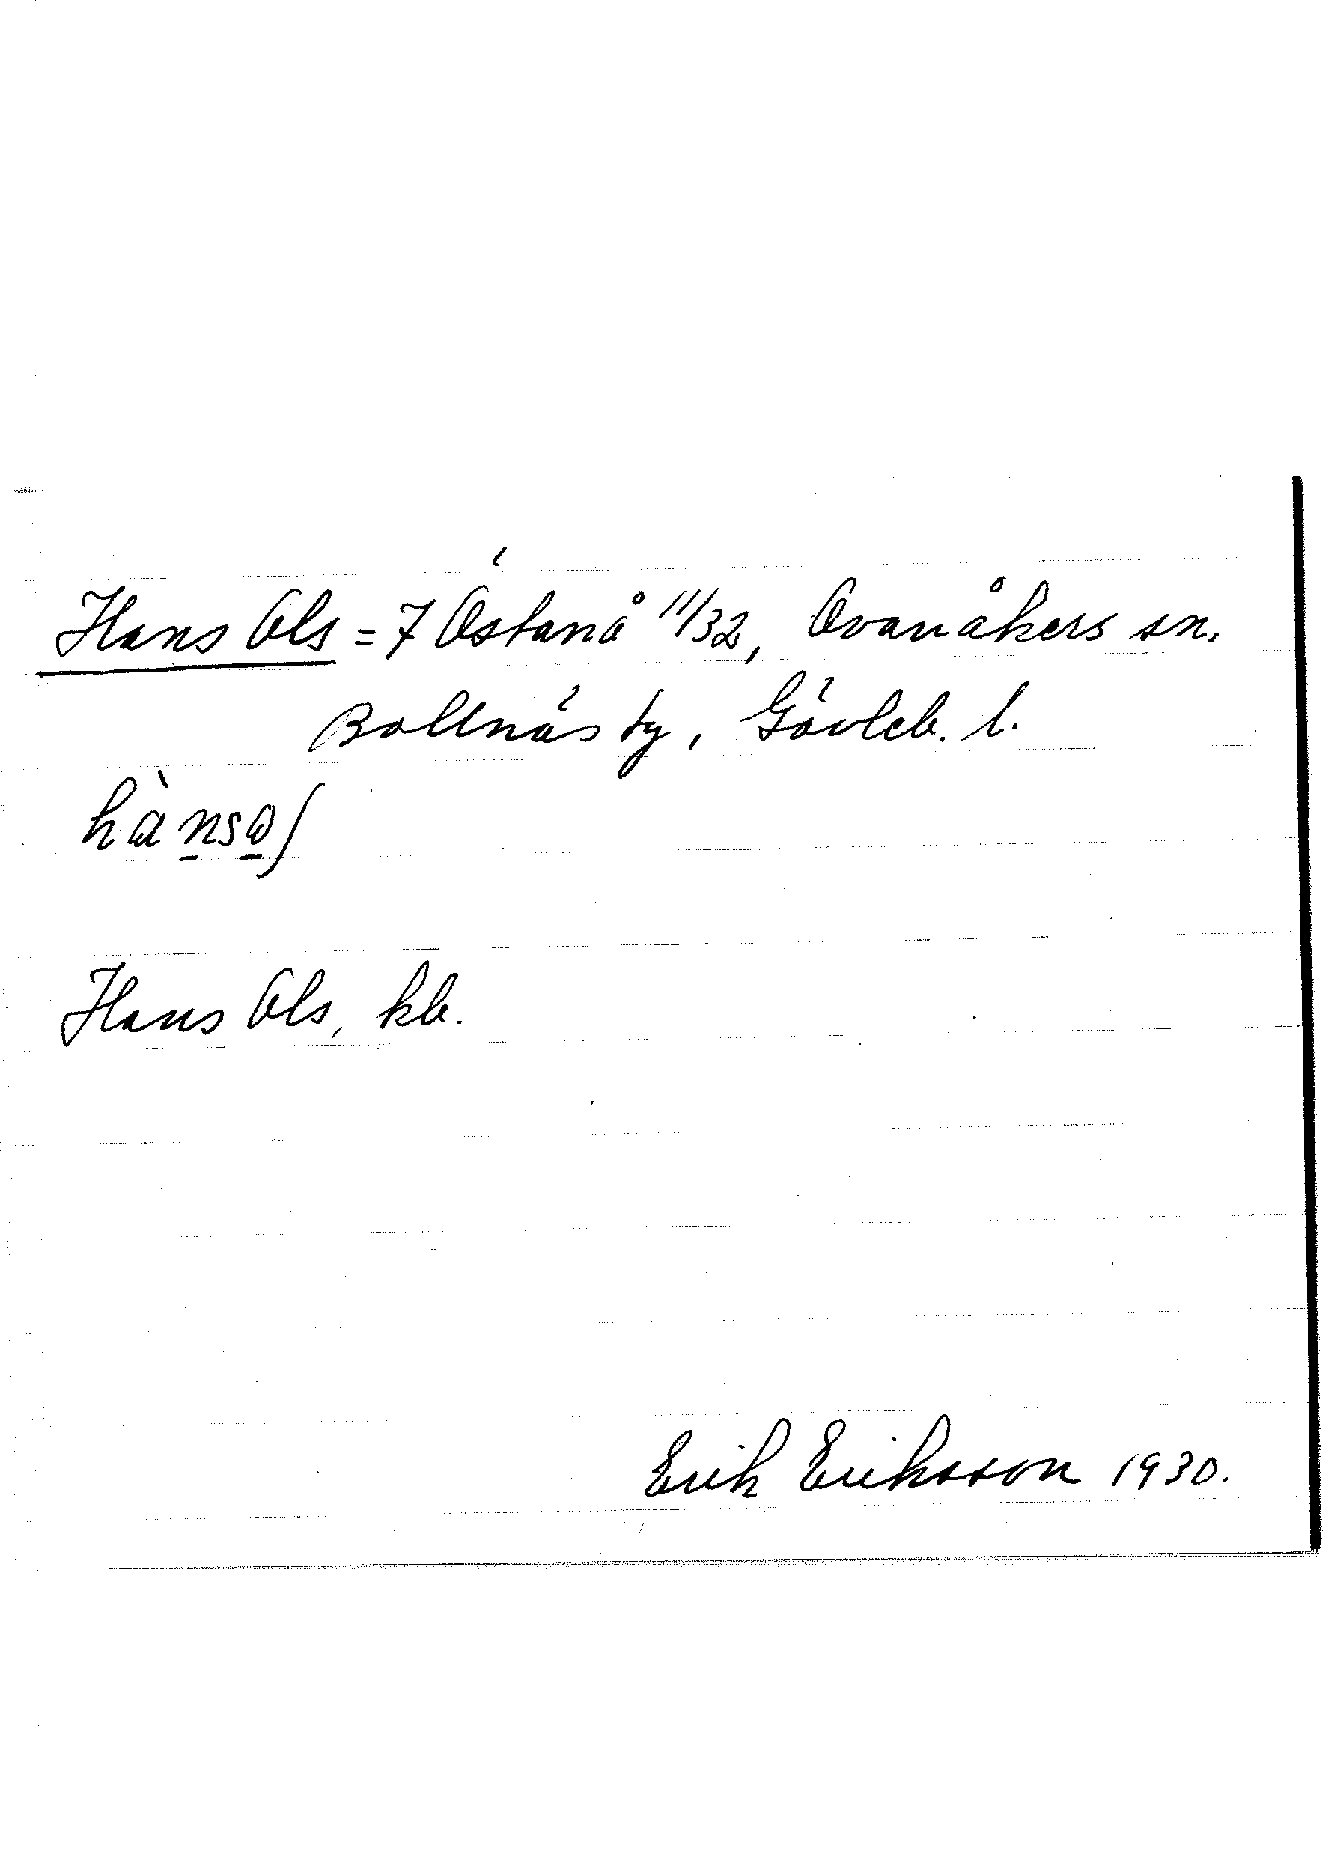 Hans Ols = 7 Östanå 11/32, Ovanåkers sn.
Bollnäs tg, Gävleb. l.
Hans Ols, kb.
Erik Eriksson 1930.